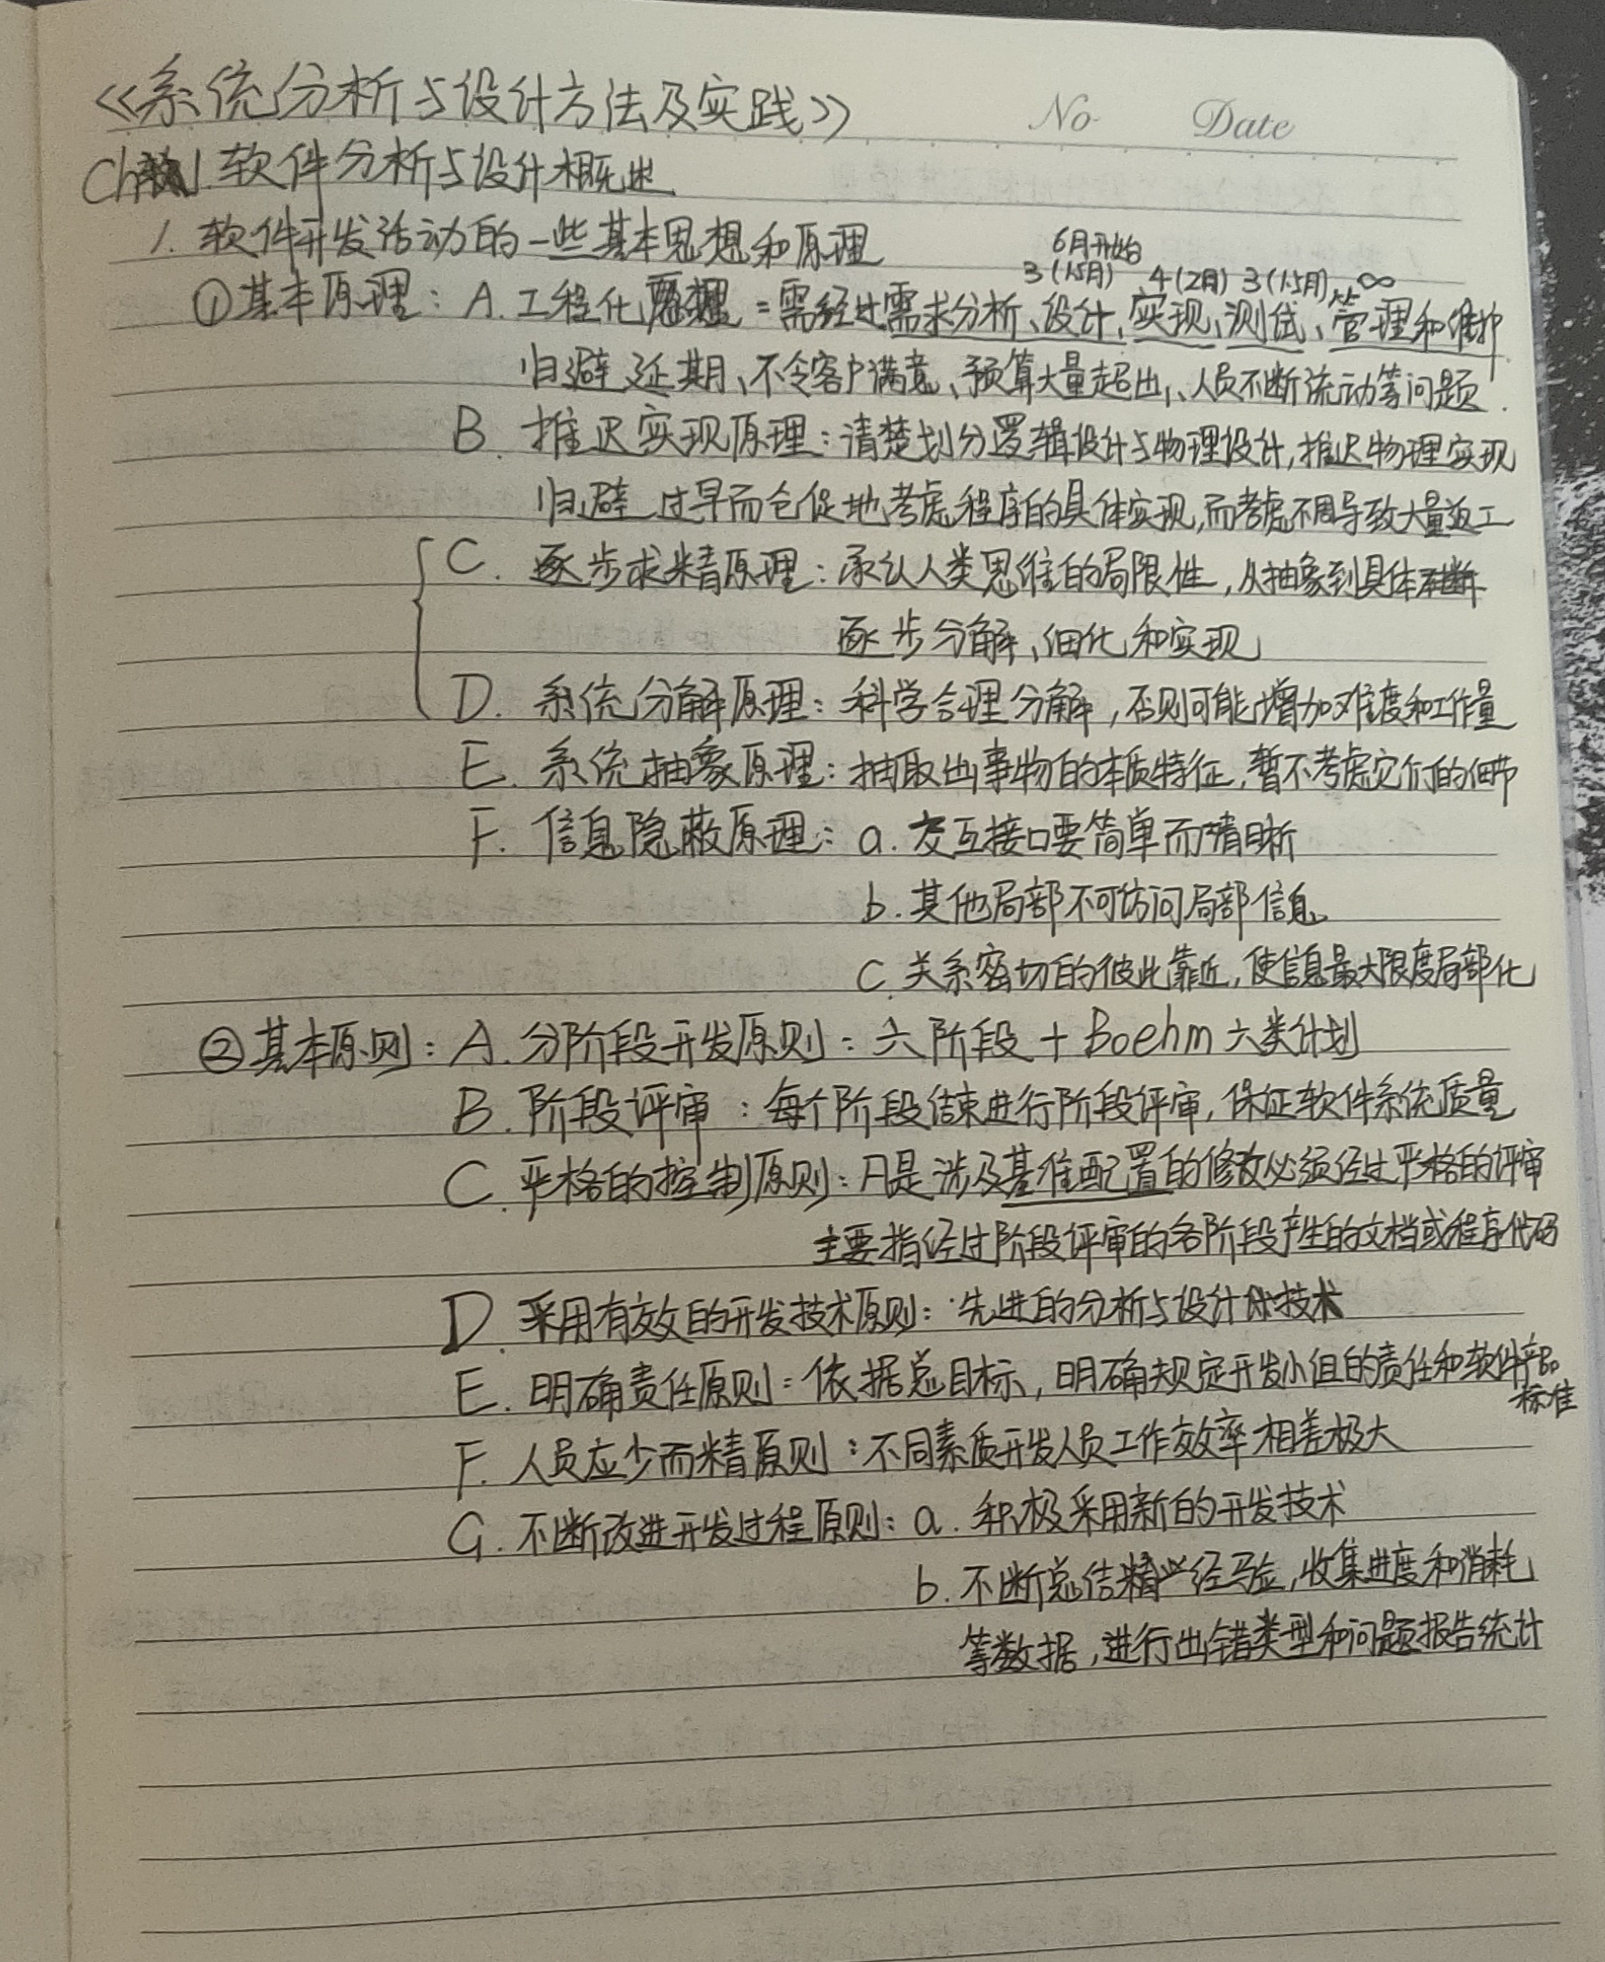 《系统分析与设计方法及实践》
No Date
Ch1.软件分析与设计概述
1. 软件开发活动的一些基本思想和原理
6月开始
3(1.5月) 4(2月) 3(1.5月) ∞
①基本原理：A.工程化原理：需经过需求分析、设计、实现、测试、管理和维护
归避 延期、不令客户满意、预算大量超出、人员不断流动等问题.
B. 推迟实现原理：请楚划分逻辑设计与物理设计,推迟物理实现
归避 过早而仓促地考虑程序的具体实现,而考虑不周导致大量返工
C. 逐步求精原理：承认人类思维的局限性，从抽象到具体
逐步分解、细化和实现
D. 系统分解原理：科学合理分解，否则可能增加难度和工作量
E. 系统抽象原理：抽取出事物的本质特征,暂不考虑它们的细节
F. 信息隐蔽原理：a. 交互接口要简单而清晰
b. 其他局部不可访问局部信息
c. 关系密切的彼此靠近,使信息最大限度局部化
②基本原则：A. 分阶段开发原则：六阶段＋Boehm六类计划
B. 阶段评审：每个阶段结束进行阶段评审,保证软件系统质量
C. 严格的控制原则：凡是涉及基准配置的修改必须经过严格的评审
主要指经过阶段评审的各阶段产生的文档或程序代码
D. 采用有效的开发技术原则：先进的分析与设计技术
E. 明确责任原则：依据总目标，明确规定开发小组的责任和软件产品
标准
F. 人员应少而精原则：不同素质开发人员工作效率相差极大
G. 不断改进开发过程原则：a. 积极采用新的开发技术
b. 不断总结经验,收集进度和消耗
等数据,进行出错类型和问题报告统计